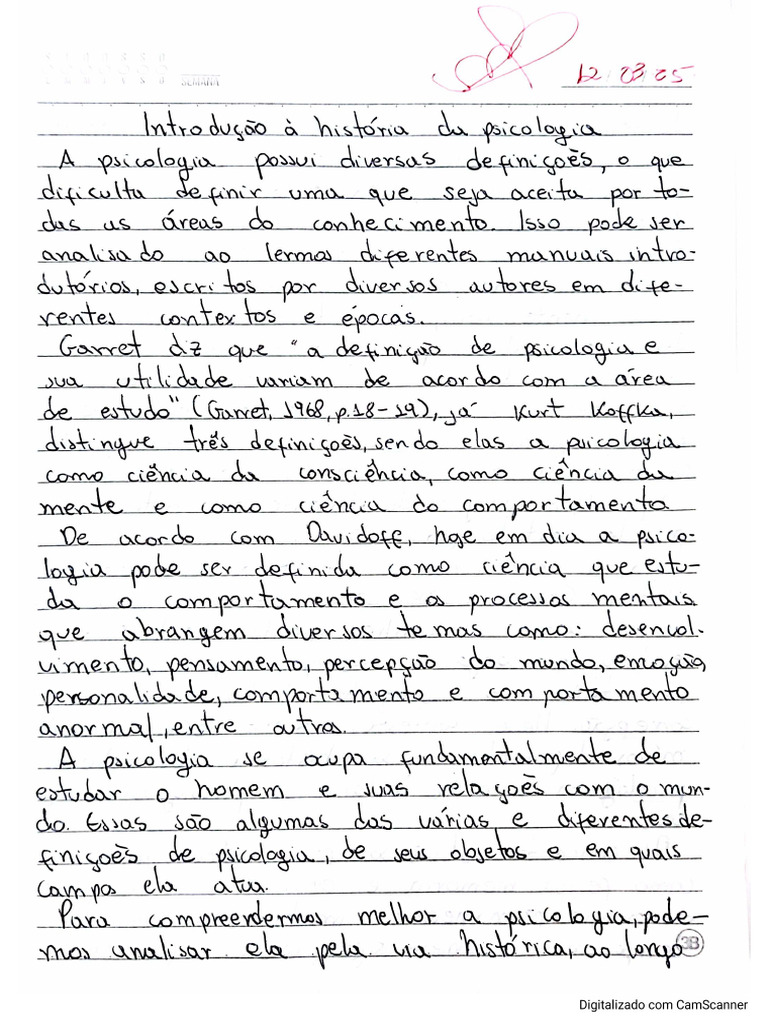 SEMANA
12 03 25
Introdução à história da psicologia
A psicologia possui diversas definições, o que
dificulta definir uma que seja aceita por to-
das as áreas do conhecimento. Isso pode ser
analisado ao lermos diferentes manuais intro-
dutórios, escritos por diversos autores em dife-
rentes contextos e épocas.
Garret diz que "a definição de psicologia e
sua utilidade variam de acordo com a área
de estudo" (Garret, 1968, p.18-19), já Kurt Koffka,
distingue três definições, sendo elas a psicologia
como ciência da consciência, como ciência da
mente e como ciência do comportamento
De acordo com Davidoff, hoje em dia a psico-
logia pode ser definida como ciência que estu-
da o comportamento e os processos mentais
que abrangem diversos temas como: desenvol-
vimento, pensamento, percepção do mundo, emoção,
personalidade, comportamento e comportamento
anormal, entre outros.
A psicologia se ocupa fundamentalmente de
estudar o homem e suas relações com o mun-
do. Essas são algumas das várias e diferentes de-
finições de psicologia, de seus objetos e em quais
campos ela atua.
Para compreendermos melhor a psicologia, pode-
mos analisar ela pela via histórica, ao longo
3B
Digitalizado com CamScanner